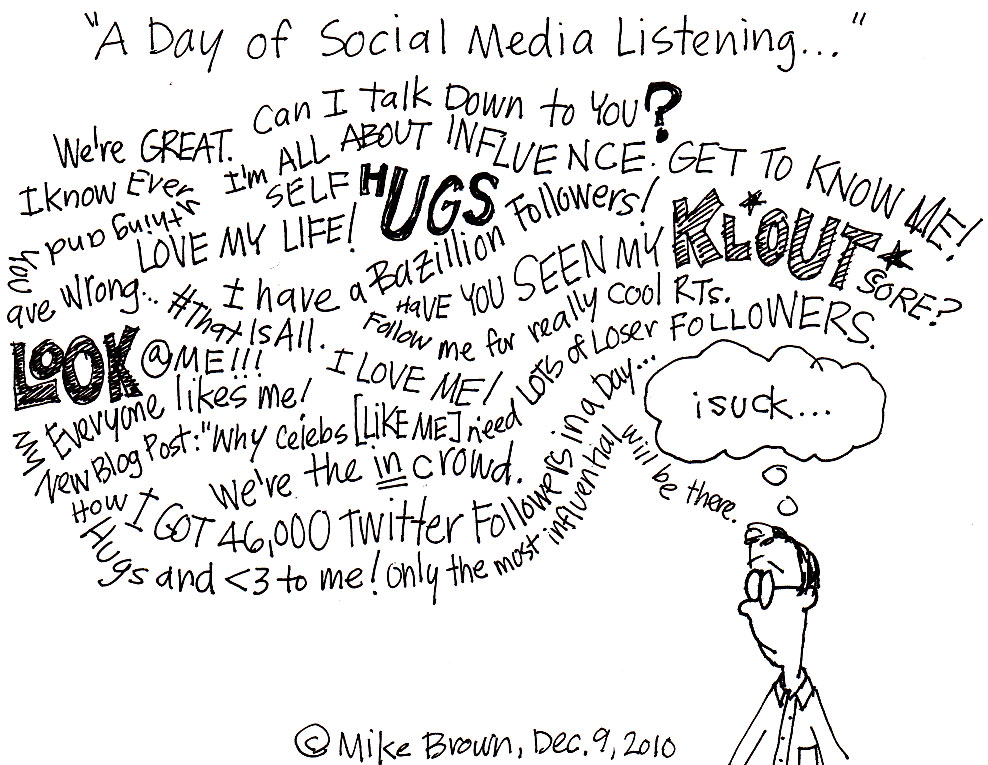 "A Day of Social Media Listening..."
Can I talk Down to You?
We're GREAT.
I'm ALL ABOUT INFLUENCE.
GET TO KNOW ME!
I know Everything and You ave Wrong...
SELF HUGS
LOVE MY LIFE!
I have a Bazillion Followers!
HAVE YOU SEEN MY KLOUT SORE?
#ThatIsAll.
Follow me for really cool RTs.
LOOK @ME!!!
I LOVE ME!
Everyone likes me!
My New Blog Post: "Why Celebs [LIKE ME] need LOTS of Loser FOLLOWERS.
We're the in crowd.
How I GOT 46,000 Twitter Followers in a Day...
Hugs and <3 to me!
Only the most influential will be there.
i suck...
© Mike Brown, Dec. 9, 2010